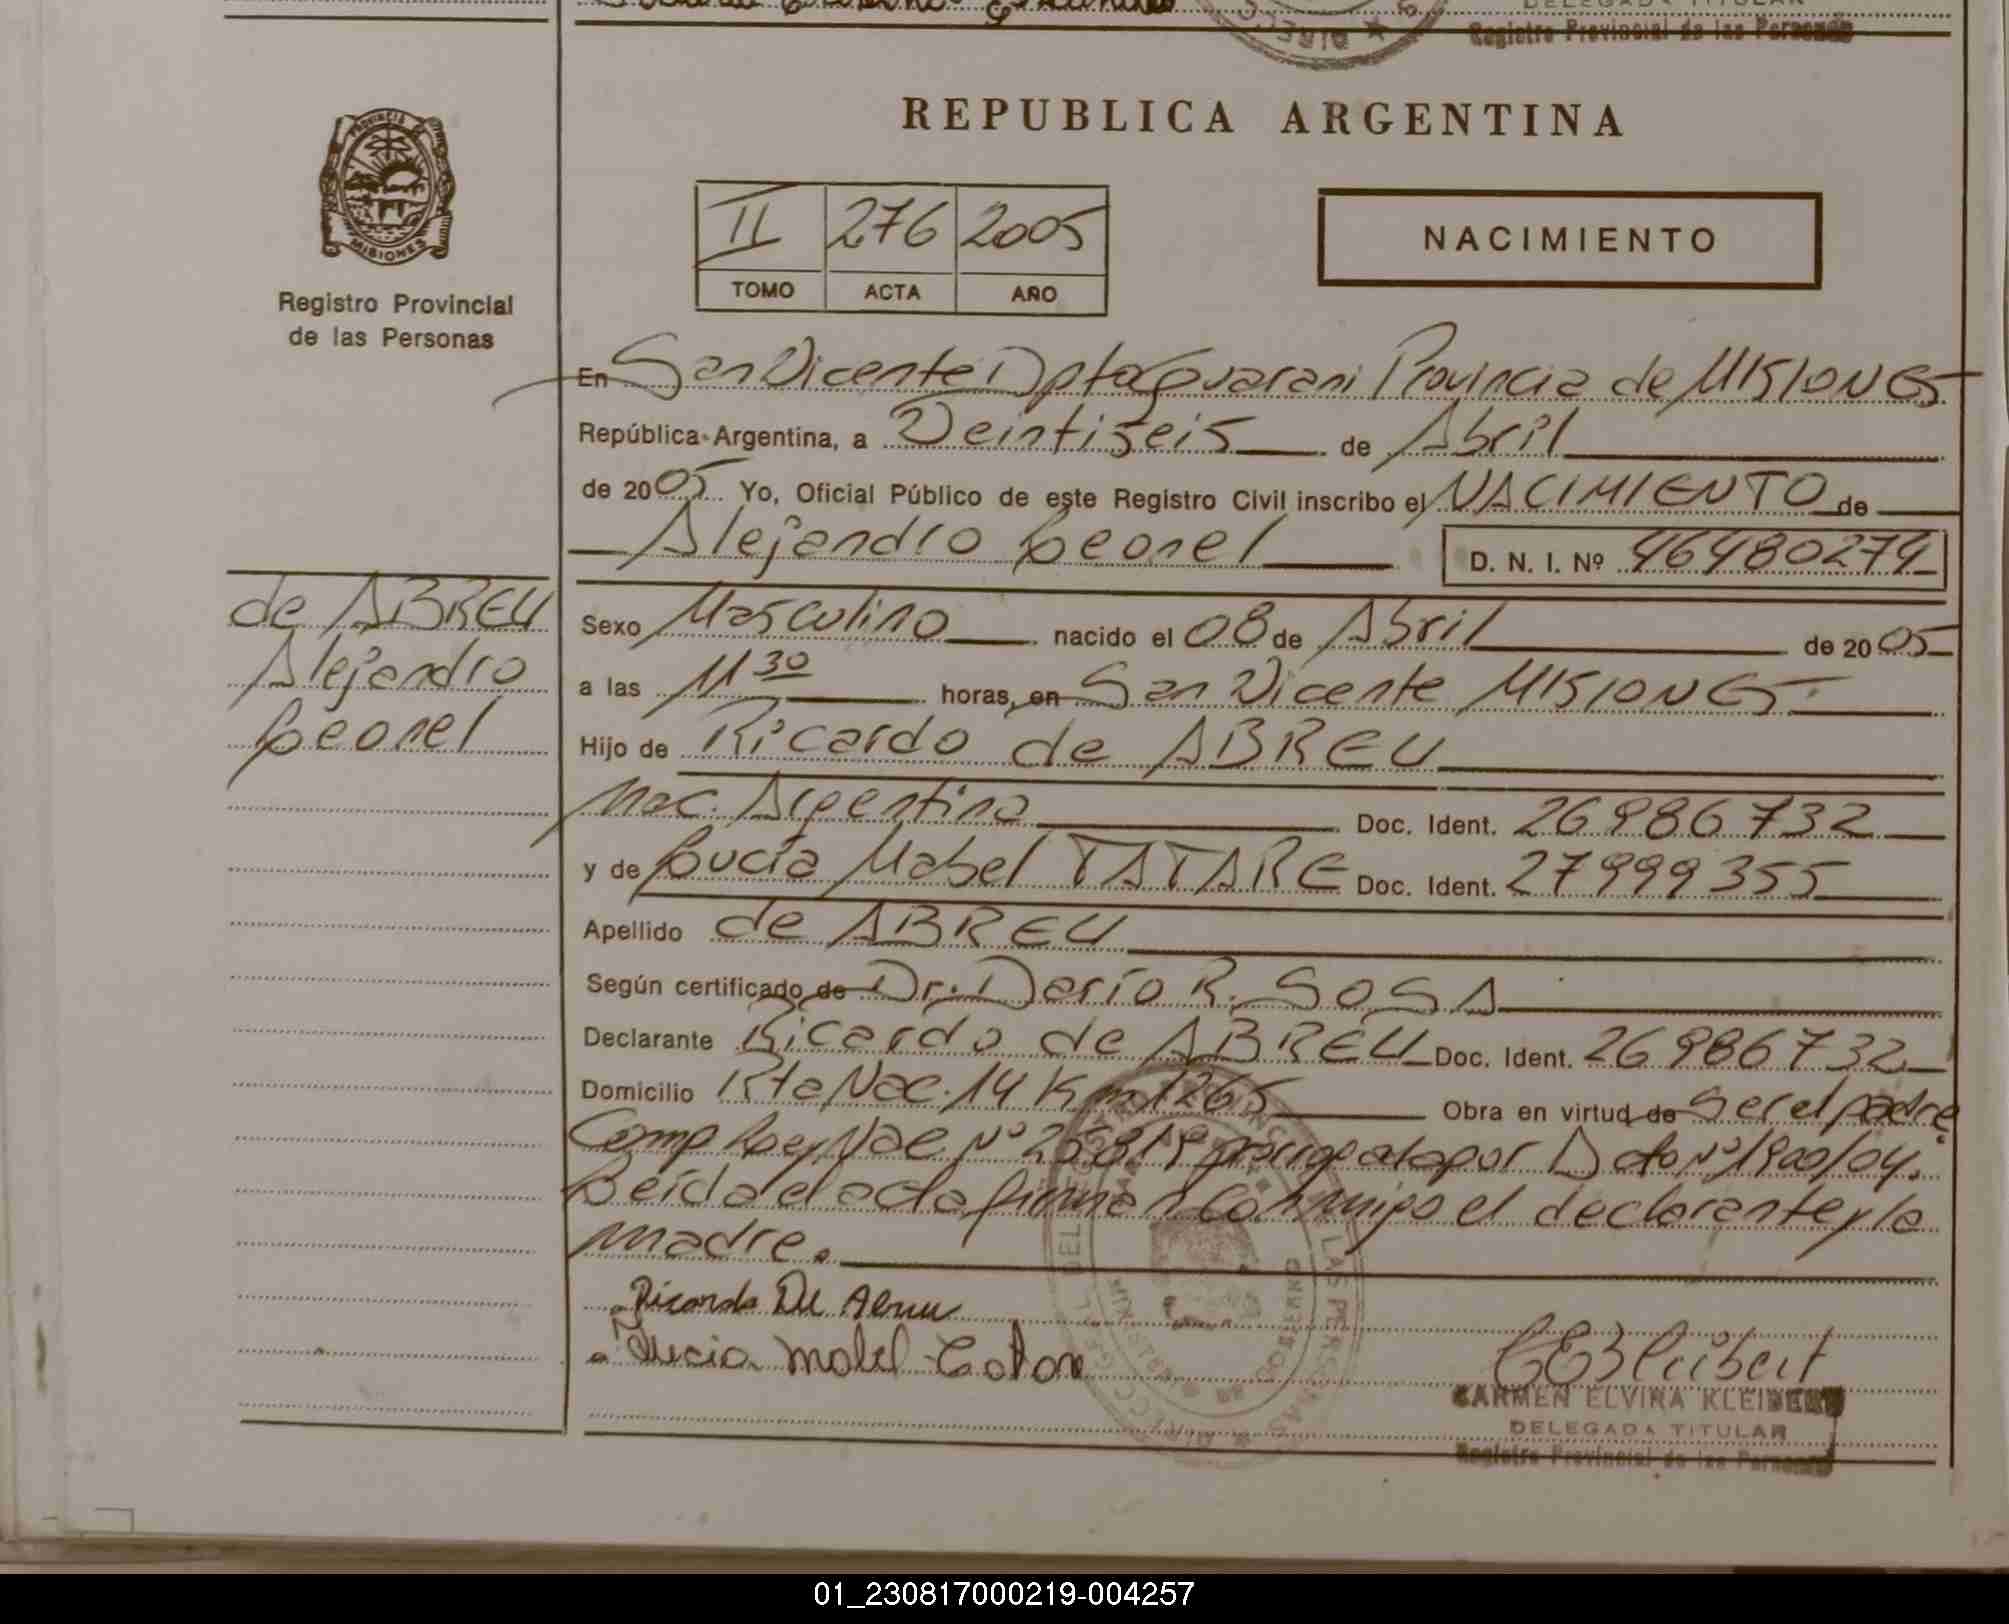 DELEGADA TITULAR
Registro Provincial de las Personas
REPUBLICA ARGENTINA
PROVINCIA DE MISIONES
Registro Provincial
de las Personas
II 276 2005
TOMO ACTA AÑO
NACIMIENTO
En San Vicente Dpto Guarani Provincia de MISIONES
República Argentina, a Veintiseis de Abril
de 2005 Yo, Oficial Público de este Registro Civil inscribo el NACIMIENTO de
Alejandro Leonel D. N. I. Nº 46480274
de ABREU
Alejandro
Leonel
Sexo Masculino nacido el 08 de Abril de 2005
a las 11 30 horas, en San Vicente MISIONES
Hijo de Ricardo de ABREU
Nac. Argentina Doc. Ident. 26986732
y de Lucía Mabel TATARE Doc. Ident. 27999355
Apellido de ABREU
Según certificado de Dr. Darío R. SOSA
Declarante Ricardo de ABREU Doc. Ident. 26986732
Domicilio Rta Nac. 14 Km 1265 Obra en virtud de Ser el padre.
Comp Ley Nac Nº 25819 por Dcto Nº 1900/04.
Leída el acta firman conmigo el declarante y la
madre.
Ricardo De Abreu
Lucia Mabel
CARMEN ELVIRA KLEIBERT
DELEGADA TITULAR
Registro Provincial de las Personas
01_230817000219-004257